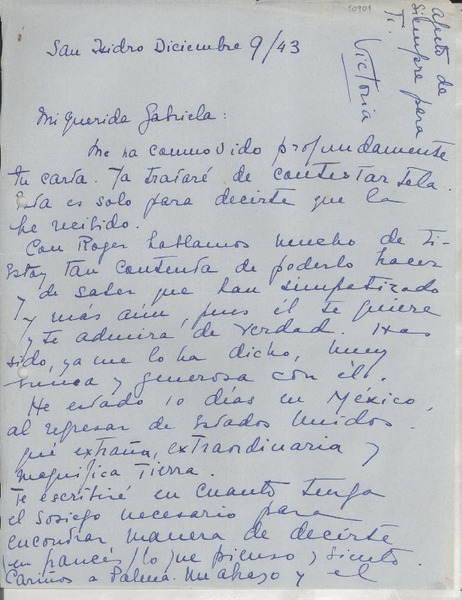 10101
San Isidro Diciembre 9/43
Mi querida Gabriela:
Me ha conmovido profundamente
tu carta. Ya trataré de contestartela.
Esta es solo para decirte que la
he recibido.
Con Roger hablamos mucho de ti.
Estoy tan contenta de poderlo hacer
y de saber que han simpatizado
y más aún, pues él te quiere
y te admira de verdad. Has
sido, ya me lo ha dicho, muy
buena y generosa con él.
He estado 10 días en México,
al regresar de Estados Unidos.
qué extraña, extraordinaria y
magnífica tierra.
Te escribiré en cuanto tenga
el sosiego necesario para
encontrar manera de decirte
(en francés) lo que pienso y siento.
Cariños a Palma. Un abrazo y el
de
siempre para
Ti.
Victoria